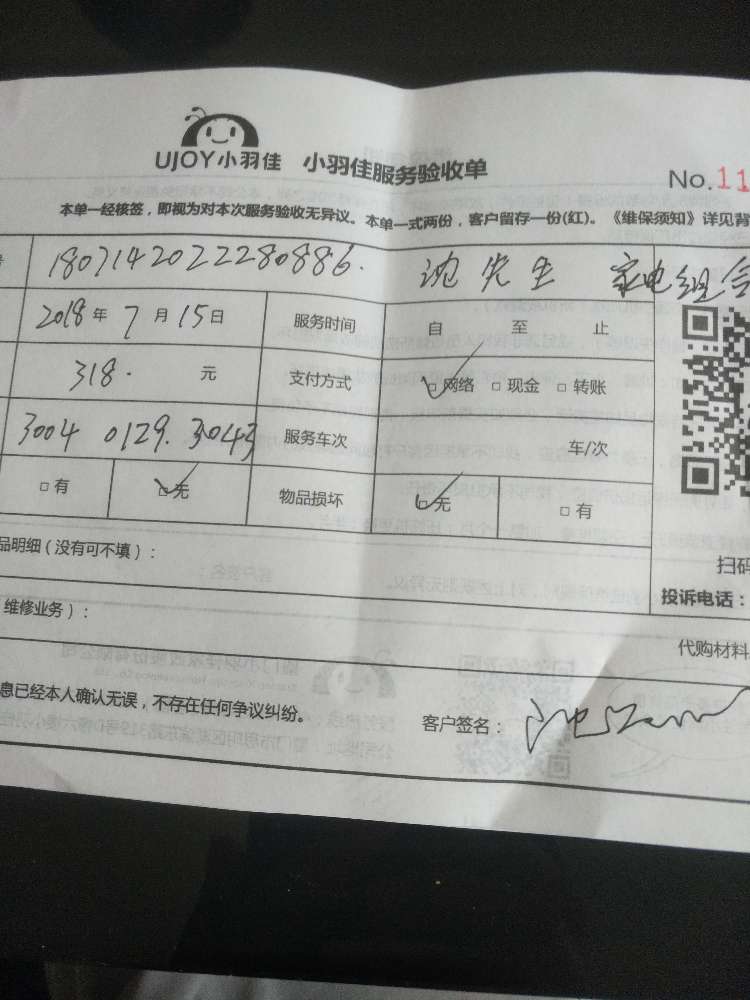 UJOY小羽佳 小羽佳服务验收单
No.11
本单一经核签，即视为对本次服务验收无异议。本单一式两份，客户留存一份(红)。《维保须知》详见背
号 1807142022280886. 沈先生 家电组合
2018年7月15日 服务时间 自 至 止
318. 元 支付方式 □网络 □现金 □转账
3004 0129. 3043 服务车次 车/次
□有 □无 物品损坏 □无 □有
品明细（没有可不填）：
扫码
维修业务）：
投诉电话：
代购材料
息已经本人确认无误，不存在任何争议纠纷。 客户签名：